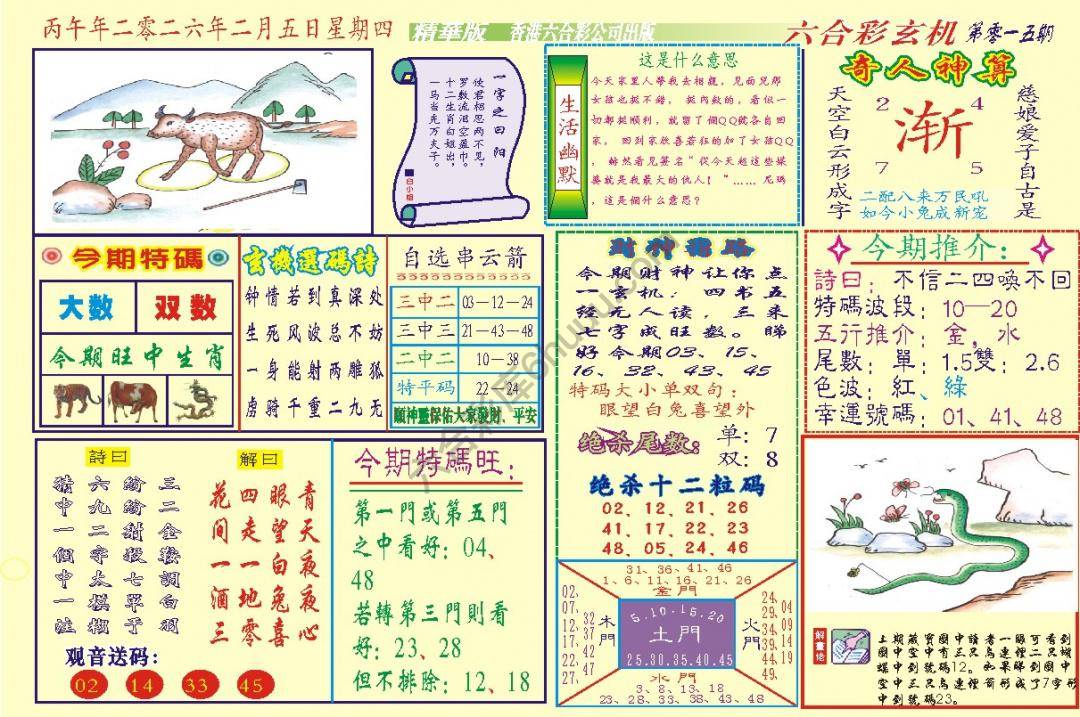 丙午年二零二六年二月五日星期四
精華版 香港六合彩公司出版
六合彩玄机 第零一五期
一字之曰阳
使君相思两不见，
罗数流泪空盈巾。
十二生肖白姐出，
一马当先万夫子。
白小姐
生活幽默
这是什么意思
今天家里人帮我去相親，见面兄那
女孩也挺不錯， 挺内數的，看似一
切都挺順利， 就留了個QQ號各自回
家， 回到家欣喜若狂的加了女孩QQ
， 赫然看见簽名“從今天起這些媒
婆就是我最大的仇人！”……尼瑪
，這是個什么意思?
奇人神算
天空白云形成字
2 4
渐
7 5
慈娘爱子自古是
二配八来万民吼
如今小兔成新宠
今期特碼
大数 双数
今期旺中生肖
玄機選碼詩
钟情若到真深处
生死风波总不妨
一身能射两雕狐
虏骑千重二九无
自选串云箭
三中二 03—12—24
三中三 21—43—48
二中二 10—38
特平码 22—24
願神靈保佑大家發財、平安
财神指路
今期财神让你点
一玄机：四书五
经无人读，三来
七字成旺数。睇
好今期03、15、
16、32、43、45
特码大小单双句：
眼望白兔喜望外
绝杀尾数：
单：7
双：8
绝杀十二粒码
02、12、21、26
41、17、22、23
48、05、24、46
今期推介：
詩曰：不信二四喚不回
特碼波段：10—20
五行推介：金，水
尾數：單：1.5雙：2.6
色波：紅、綠
幸運號碼：01、41、48
詩曰
三二金鞍調白羽
紛紛射殺七單于
六九二字太模糊
猜中一個中一注
解曰
青天夜夜心
眼望白兔喜
四走一地零
花间一酒三
观音送码：
02 14 33 45
今期特碼旺：
第一門或第五門
之中看好：04、
48
若轉第三門則看
好：23、28
但不排除：12、18
31、36、41、46
1、6、11、16、21、26
金門
02、07、12、17、22、27、
32、37、42、47
木門
5.10.15.20
土門
25.30.35.40.45
火門
24、29、34、39、44、49
04、09、14、19
水門
3、8、13、18
23、28、33、38、43、48
解畫佬
上期藏寶圖中讀者一眼可看到
圖中空中有三只鸟連徑二只蝴
蝶中到號碼12。如果睇到圖中
空中三只鸟連徑箭形成了7字形
中到號碼23。
六合彩库6huwu.com